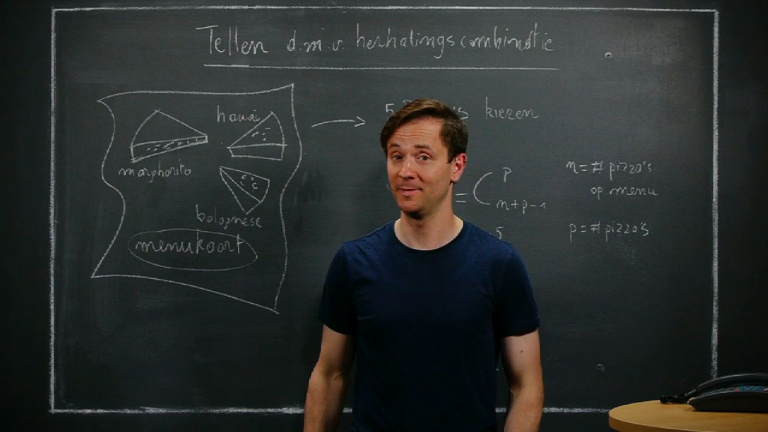 Tellen d.m.v. herhalingscombinatie
hawaï
margherita
bolognese
menukaart
kiezen
= C
p
n+p-1
5
n = # pizza's
op menu
p = # pizza's